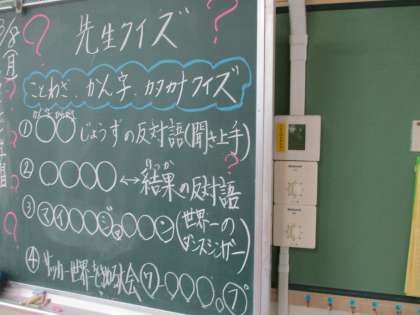 先生クイズ
ことわざ、かん字、カタカナクイズ
① ○○じょうずの反対語(聞き上手)
② ○○○○ ↔ 結果の反対語
けっか
③ マイ○○・ジ○○○ン(世界一のダンスシンガー)
④ サッカー世界一を決める大会 ワー○○○○。プ